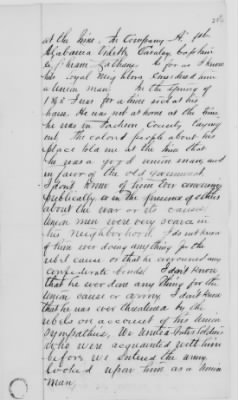 at the time. In Company H 1st
Alabama Vidette Cavalry Captain
Ephraim Latham. So far as I know
his loyal neighbors considered him
a union man. In the spring of
186 I was for a time sick at his
house. He was not at home at the time
he was in Jackson County laying
out. The colored people about his
place told me at the time that
he was a good union man and
in favor of the old government.
I don't know of him ever conversing
publically or in the presence of others
about the war or its causes.
Union men were very scarce in
his neighborhood. I do not know
of him ever doing anything for the
rebel cause or that he ever owned any
confederate bonds. I don't know
that he ever done any thing for the
Union cause or army. I don't know
that he was ever threatened by the
rebels on account of his Union
sympathies. We United States Soldiers
who were acquainted with him
before we entered the army
looked upon him as a Union
man.